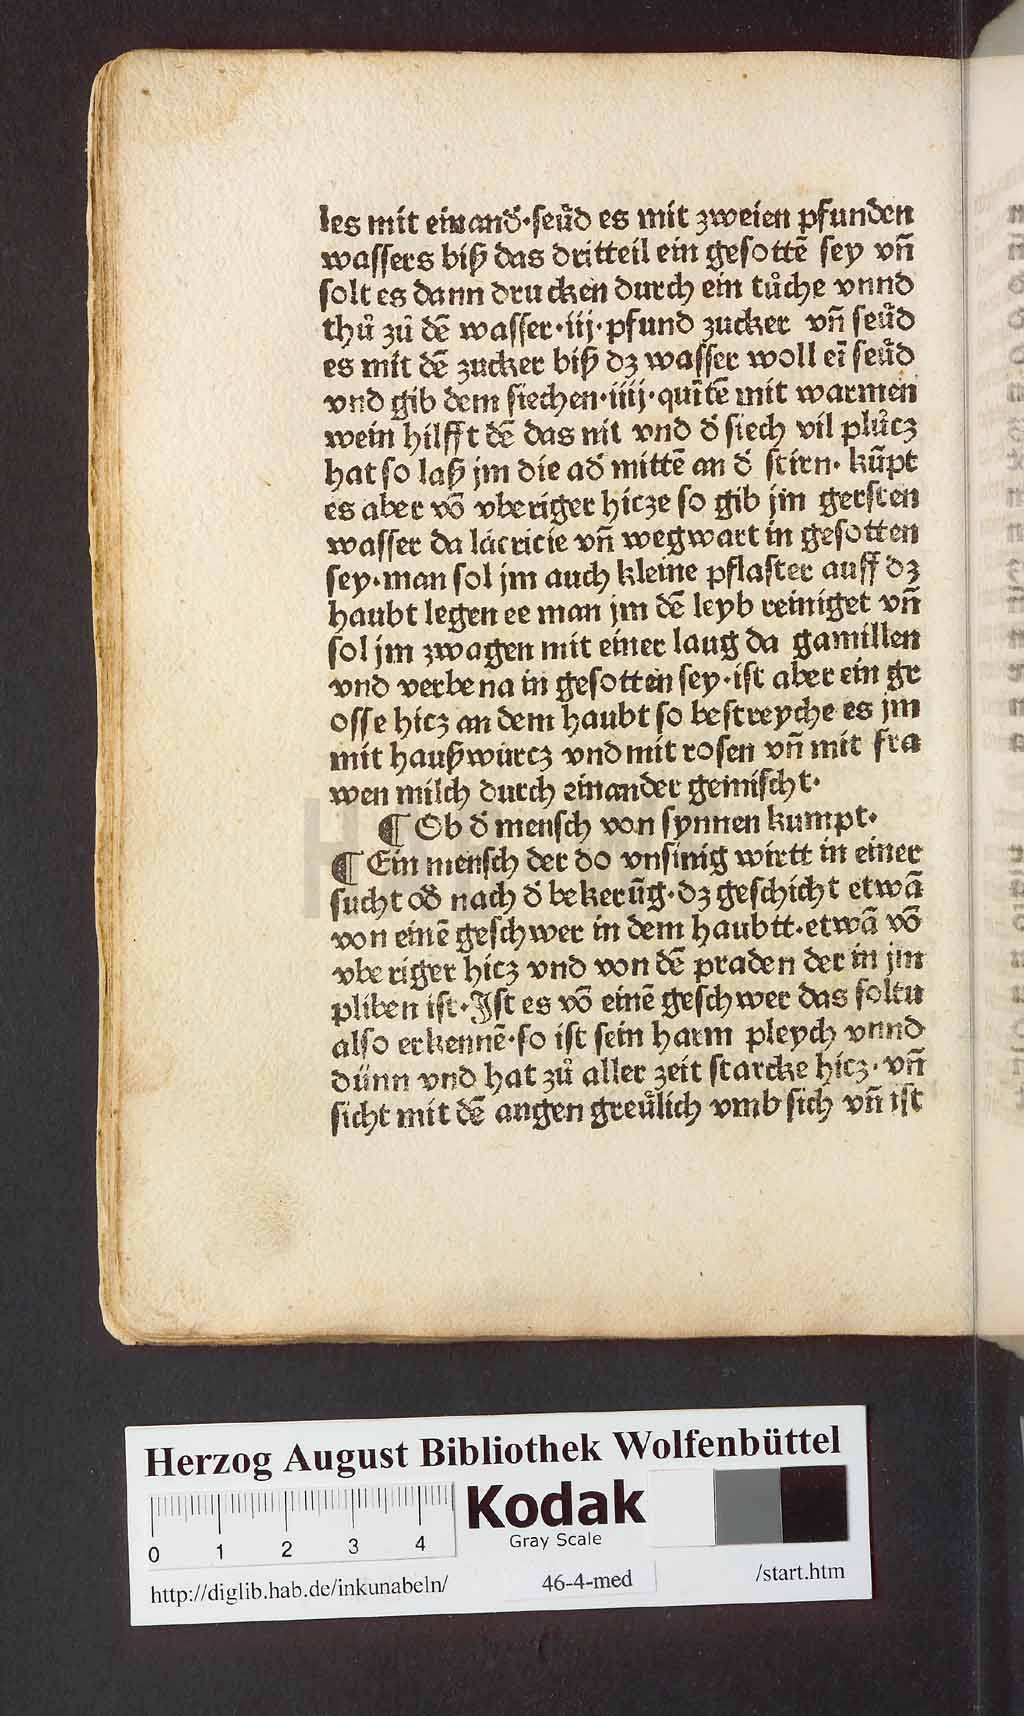 les mit einand̛·seůd es mit zweien pfunden
wassers biß das dritteil ein gesottē sey vn̄
solt es dann drucken durch ein tůche vnnd
thů zů dē wasser·iij·pfund zucker vn̄ seůd
es mit dē zucker biß dz wasser woll eī seůd
vnd gib dem siechen·iiij·quītē mit warmen
wein hilfft dē das nit vnd d̛ siech vil plůcz
hat so laß jm die ad̛ mittē an d̛ stirn· kūpt
es aber vō vberiger hicze so gib jm gersten
wasser da lácricie vn̄ wegwart in gesotten
sey·man sol jm auch kleine pflaster auff dz
haubt legen ee man jm dē leyb reiniget vn̄
sol jm zwagen mit einer laug da gamillen
vnd verbena in gesotten sey·ist aber ein gr
osse hicz an dem haubt so bestreyche es jm
mit haußwurcz vnd mit rosen vn̄ mit fra
wen milch durch einander gemischt·
¶ Ob d̛ mensch von synnen kumpt·
¶ Ein mensch der do vnsinig wirtt in einer
sucht od̛ nach d̛ bekerūg·dz geschicht etwā
von einē geschwer in dem haubtt·etwā vō
vberiger hicz vnd von dē praden der in jm
pliben ist·Ist es vō einē geschwer das soltu
also erkennē·so ist sein harm pleych vnnd
dünn vnd hat zů aller zeit starcke hicz·vn̄
sicht mit dē angen greůlich vmb sich vn̄ ist
Herzog August Bibliothek Wolfenbüttel
Kodak
Gray Scale
0 1 2 3 4
http://diglib.hab.de/inkunabeln/ 46-4-med /start.htm